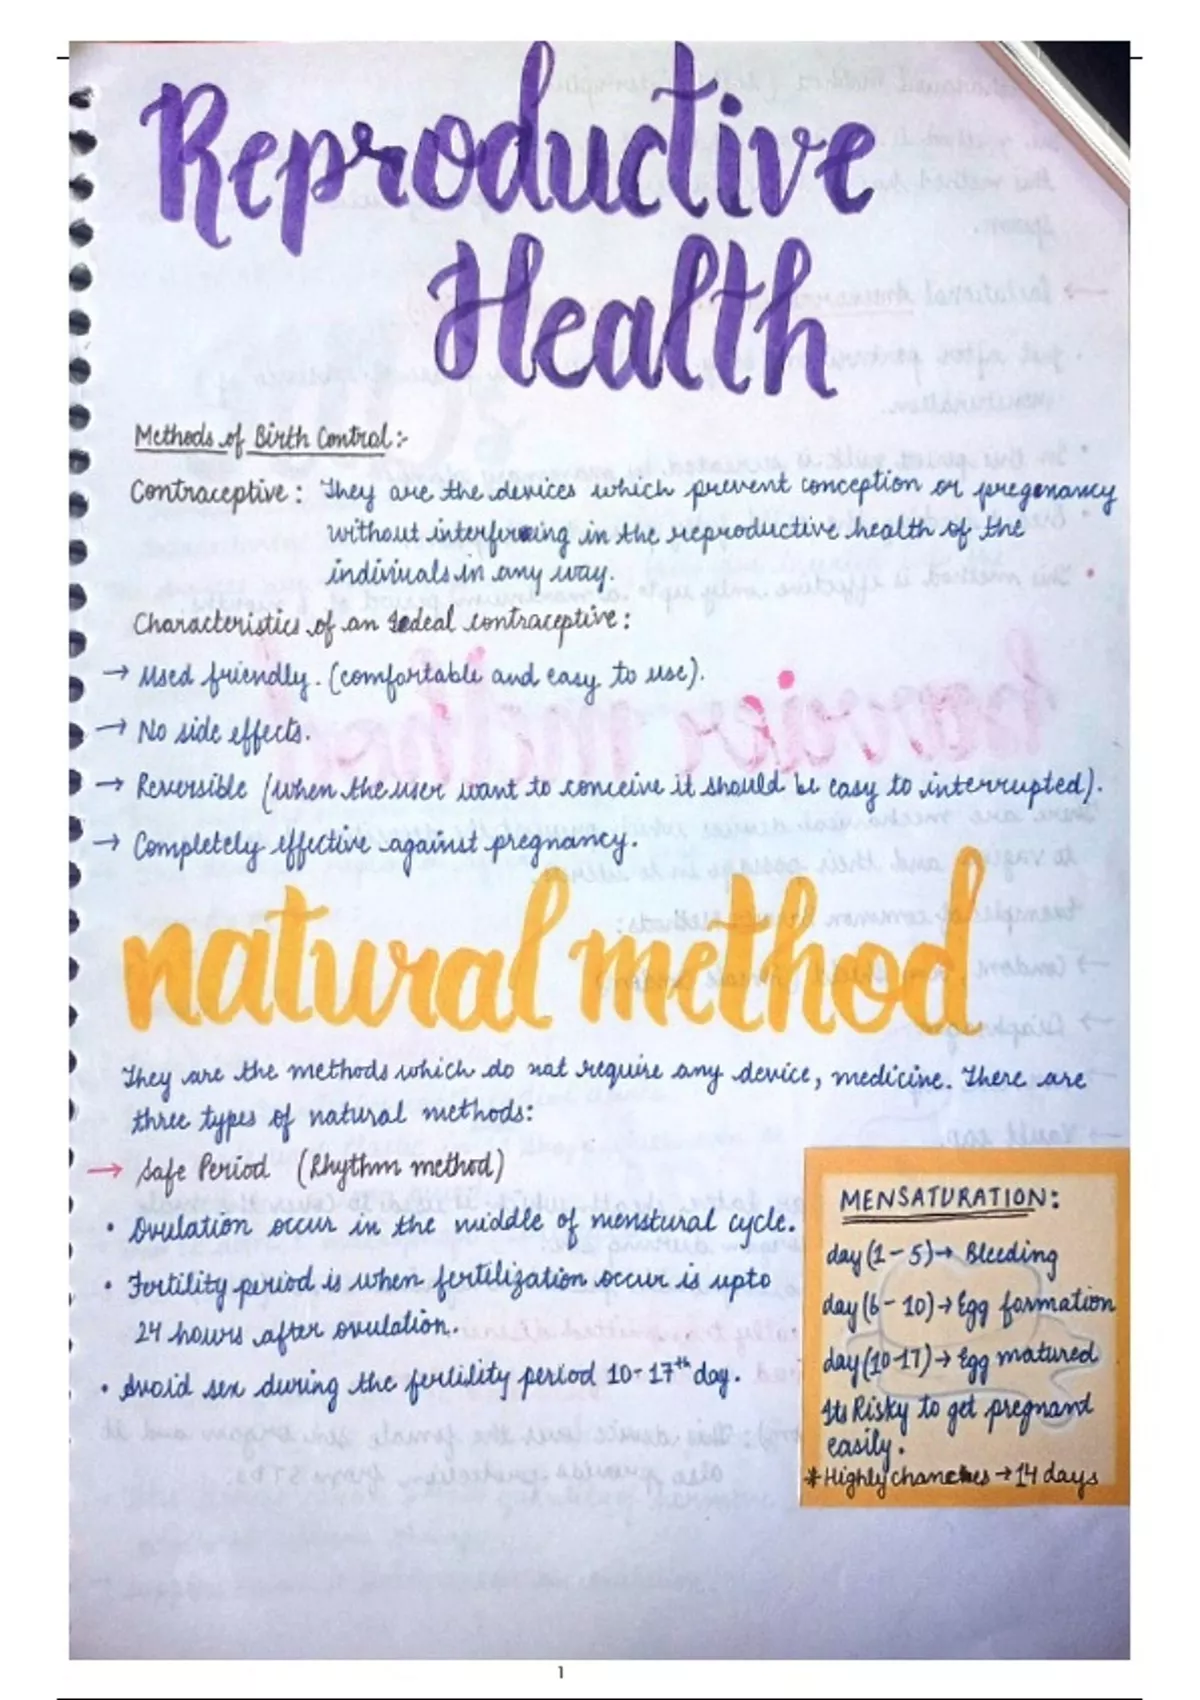 Reproductive
Health
Methods of Birth Control :-
Contraceptive : They are the devices which prevent conception or pregenancy
without interfering in the reproductive health of the
indiviuals in any way.
Characteristics of an Ideal contraceptive :
→ Used friendly. (comfortable and easy to use).
→ No side effects.
→ Reversible (when the user want to conceive it should be easy to interrupted).
→ Completely effective against pregnancy.
natural method
They are the methods which do not require any device, medicine. There are
three types of natural methods:
→ Safe Period (Rhythm method)
• Ovulation occur in the middle of menstural cycle.
• Fertility period is when fertilization occur is upto
24 hours after ovulation.
• Avoid sex during the fertility period 10-17th day.
MENSATURATION:
day (1-5) → Bleeding
day (6-10) → Egg formation
day (10-17) → Egg matured
Its Risky to get pregnand
easily.
* Highly chances → 14 days
1